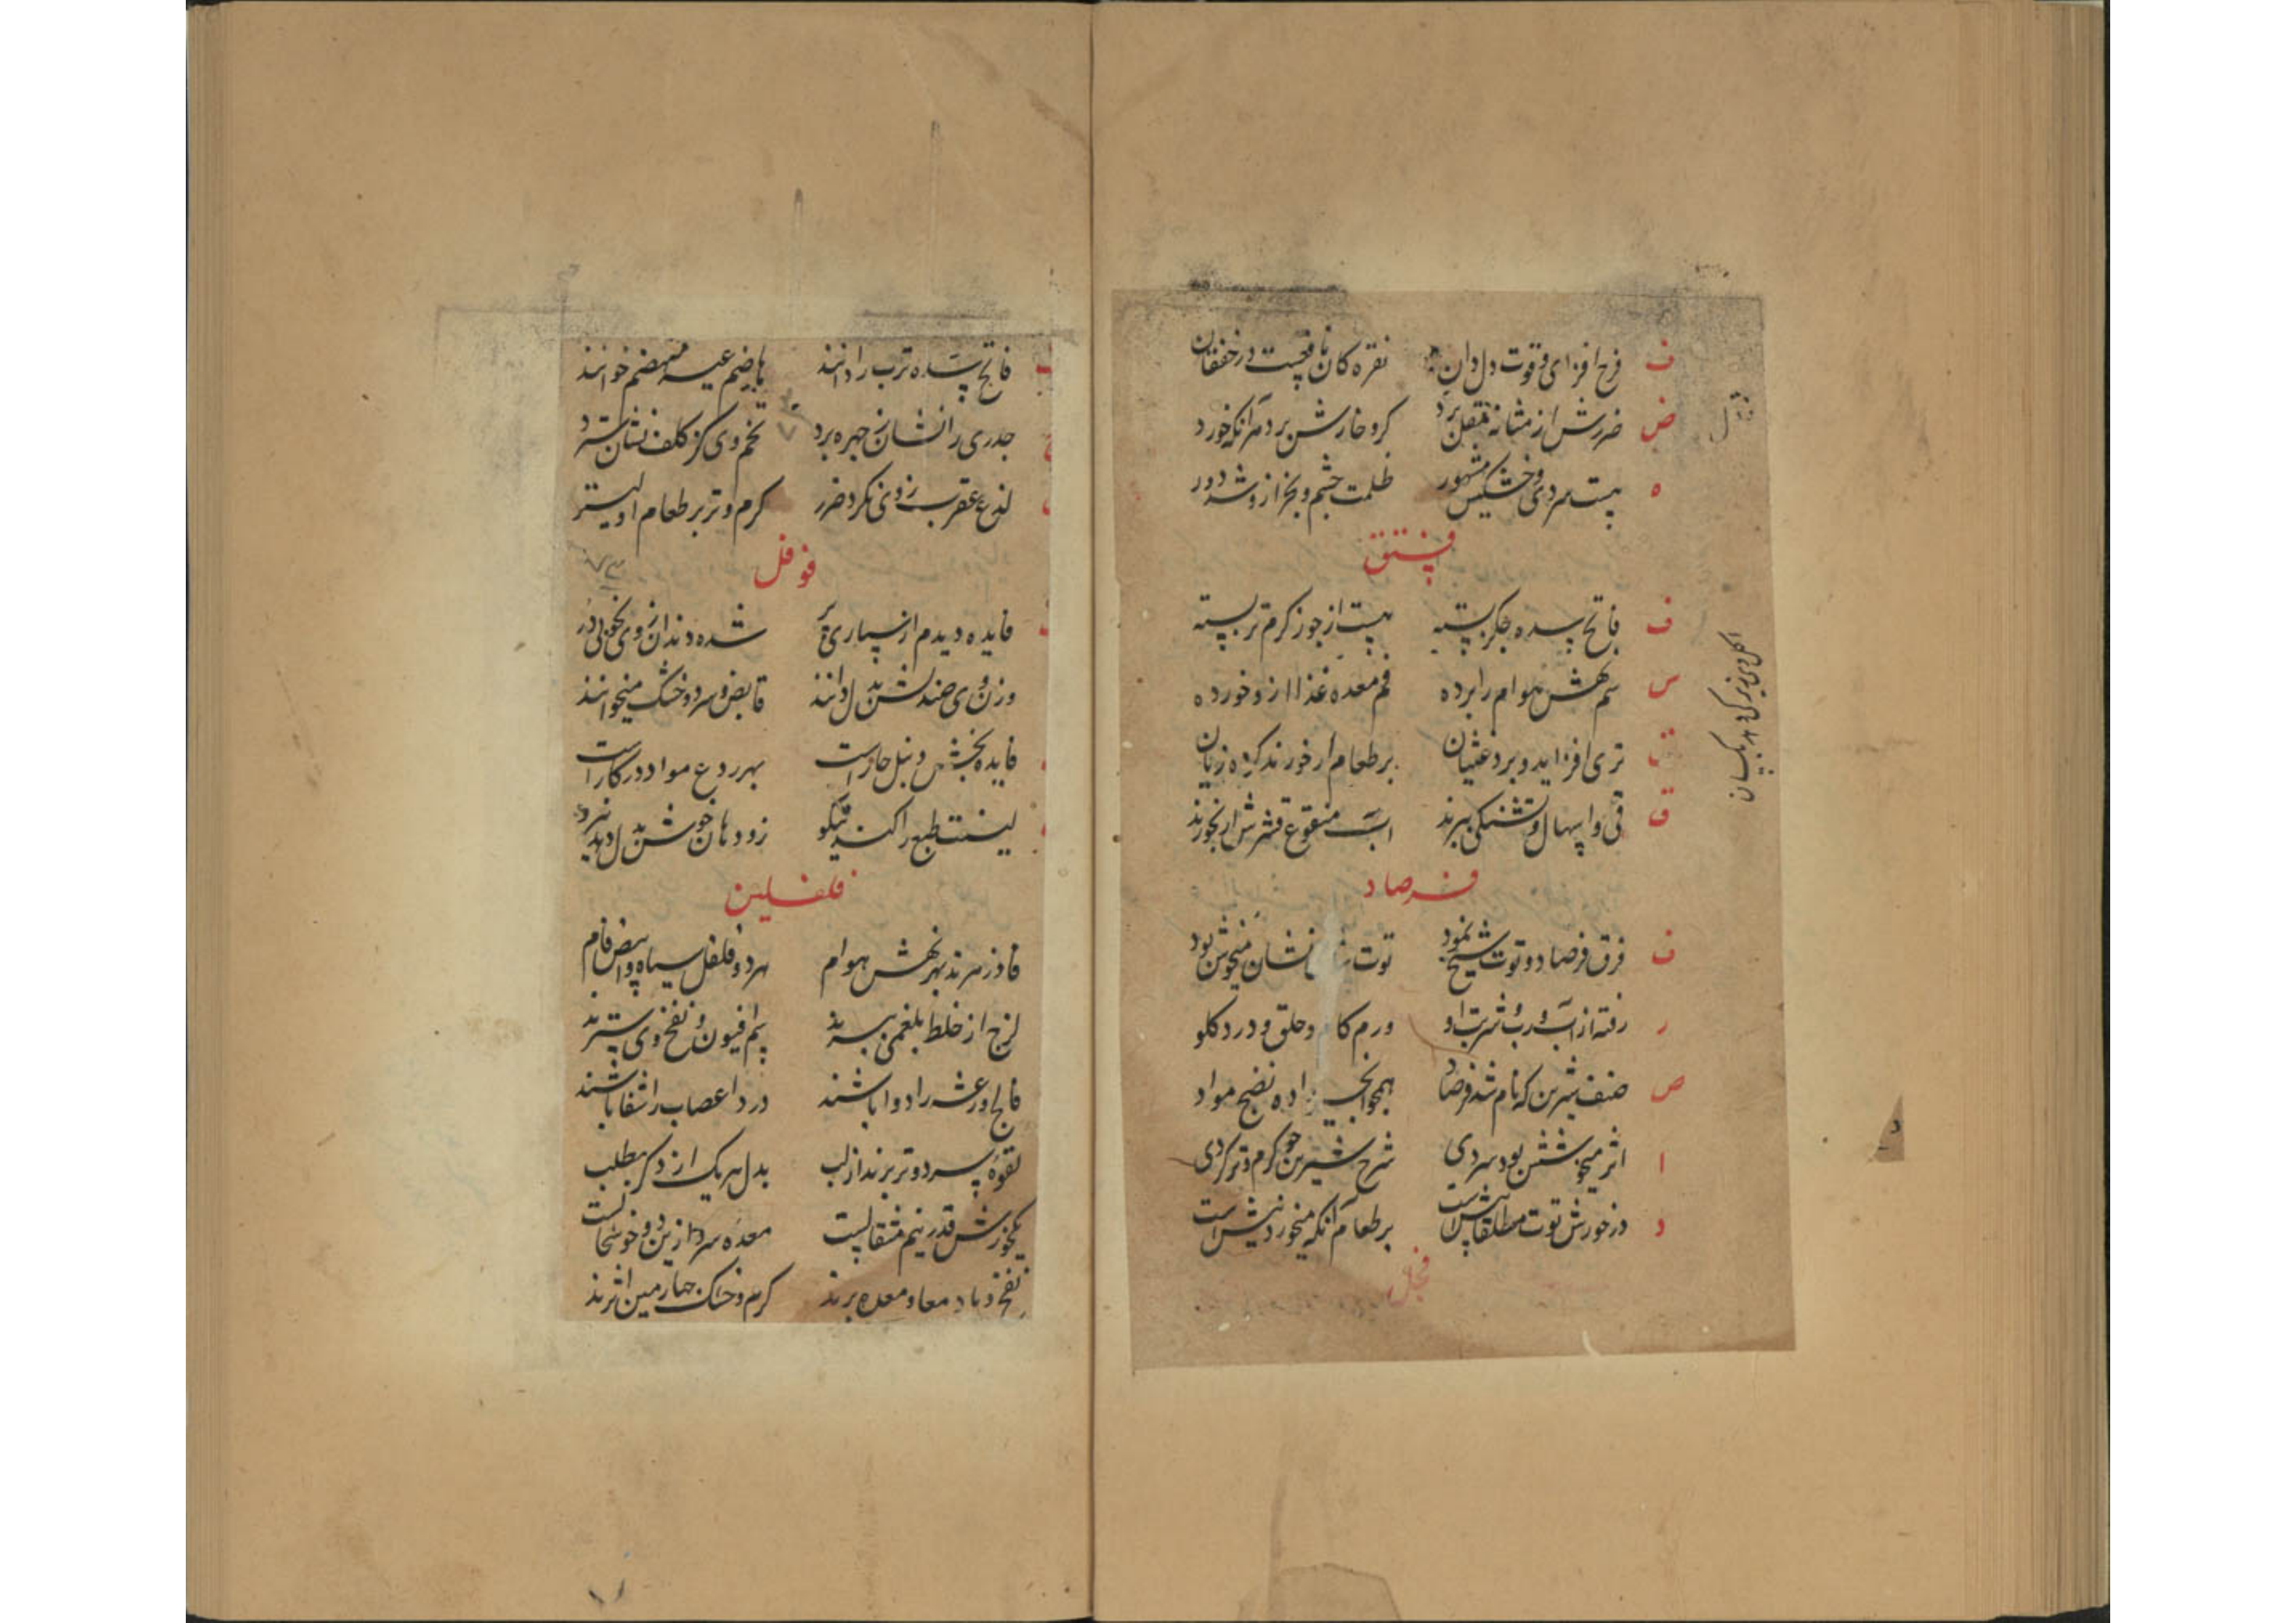 ف فرح افزای و قوت دل دان نقره کان نافعست در خفقان
ض ضررش از مثانه مقل برد کر و خارش برد مر آنکه خورد
ه هست سردی و خشکیش مشهور ظلمت چشم و بخر ازو شد دور
فستق
ف فاتح سده جگر پسته هست از جوز گرم تر پسته
س سم نهش هوام را برده فم معده غذا ازو خورده
ت تری افزاید و برد غثیان بر طعام ار خورند کرده زیان
ق قی و اسهال و تشنکی ببرند اب منقوع قشرش ار بخورند
فرصاد
ف فرق فرصاد و توت شیخ نمود توت نشان میخوش بود
ر رفته از آب و رب و شربت او ورم کام و حلق و درد کلو
ص صنف شیرین که نام شد فرصاد همچو انجیر داده نضج مواد
ا اثر میخوشش بود سردی شرح شیرین چو گرم و تر کردی
د در خورش توت مطلقا پیش است بر طعام آنکه میخورد نیش است
فجل
فاتح سده ترب را دانند هاضم غیر منهضم خوانند
جدری را نشان ز چهره برد تخم وی کز کلف نشان سترد
لذع عقرب ز وی نکرد ضرر کرم و تر بر طعام اولیتر
فوفل
فایده دیدم از سپاری پر شده دندان ز وی بخوبی در
وزن وی صندلش بدل دانند قابض و سرد و خشک میخوانند
فایده بخش دنبل حار است بهر ردع مواد در کار است
لینت طبع را کند نیکو زو دهان خوش
فلفلین
فادزهرند بهر نهش هوام هر دو فلفل سیاه و ابیض فام
لزج از خلط بلغمی ببرند سم افیون و نفخ وی سترند
فالج و رعشه را دوا باشند درد اعصاب را شفا باشند
لقوه سرد و تر برند از لب بدل هر یک از دکر بطلب
یکخورش قدر نیم مثقالست معده سرد ازین دو خوشحالست
نفخ و باد معا و معده برند کرم و خشک چهارمین اثرند